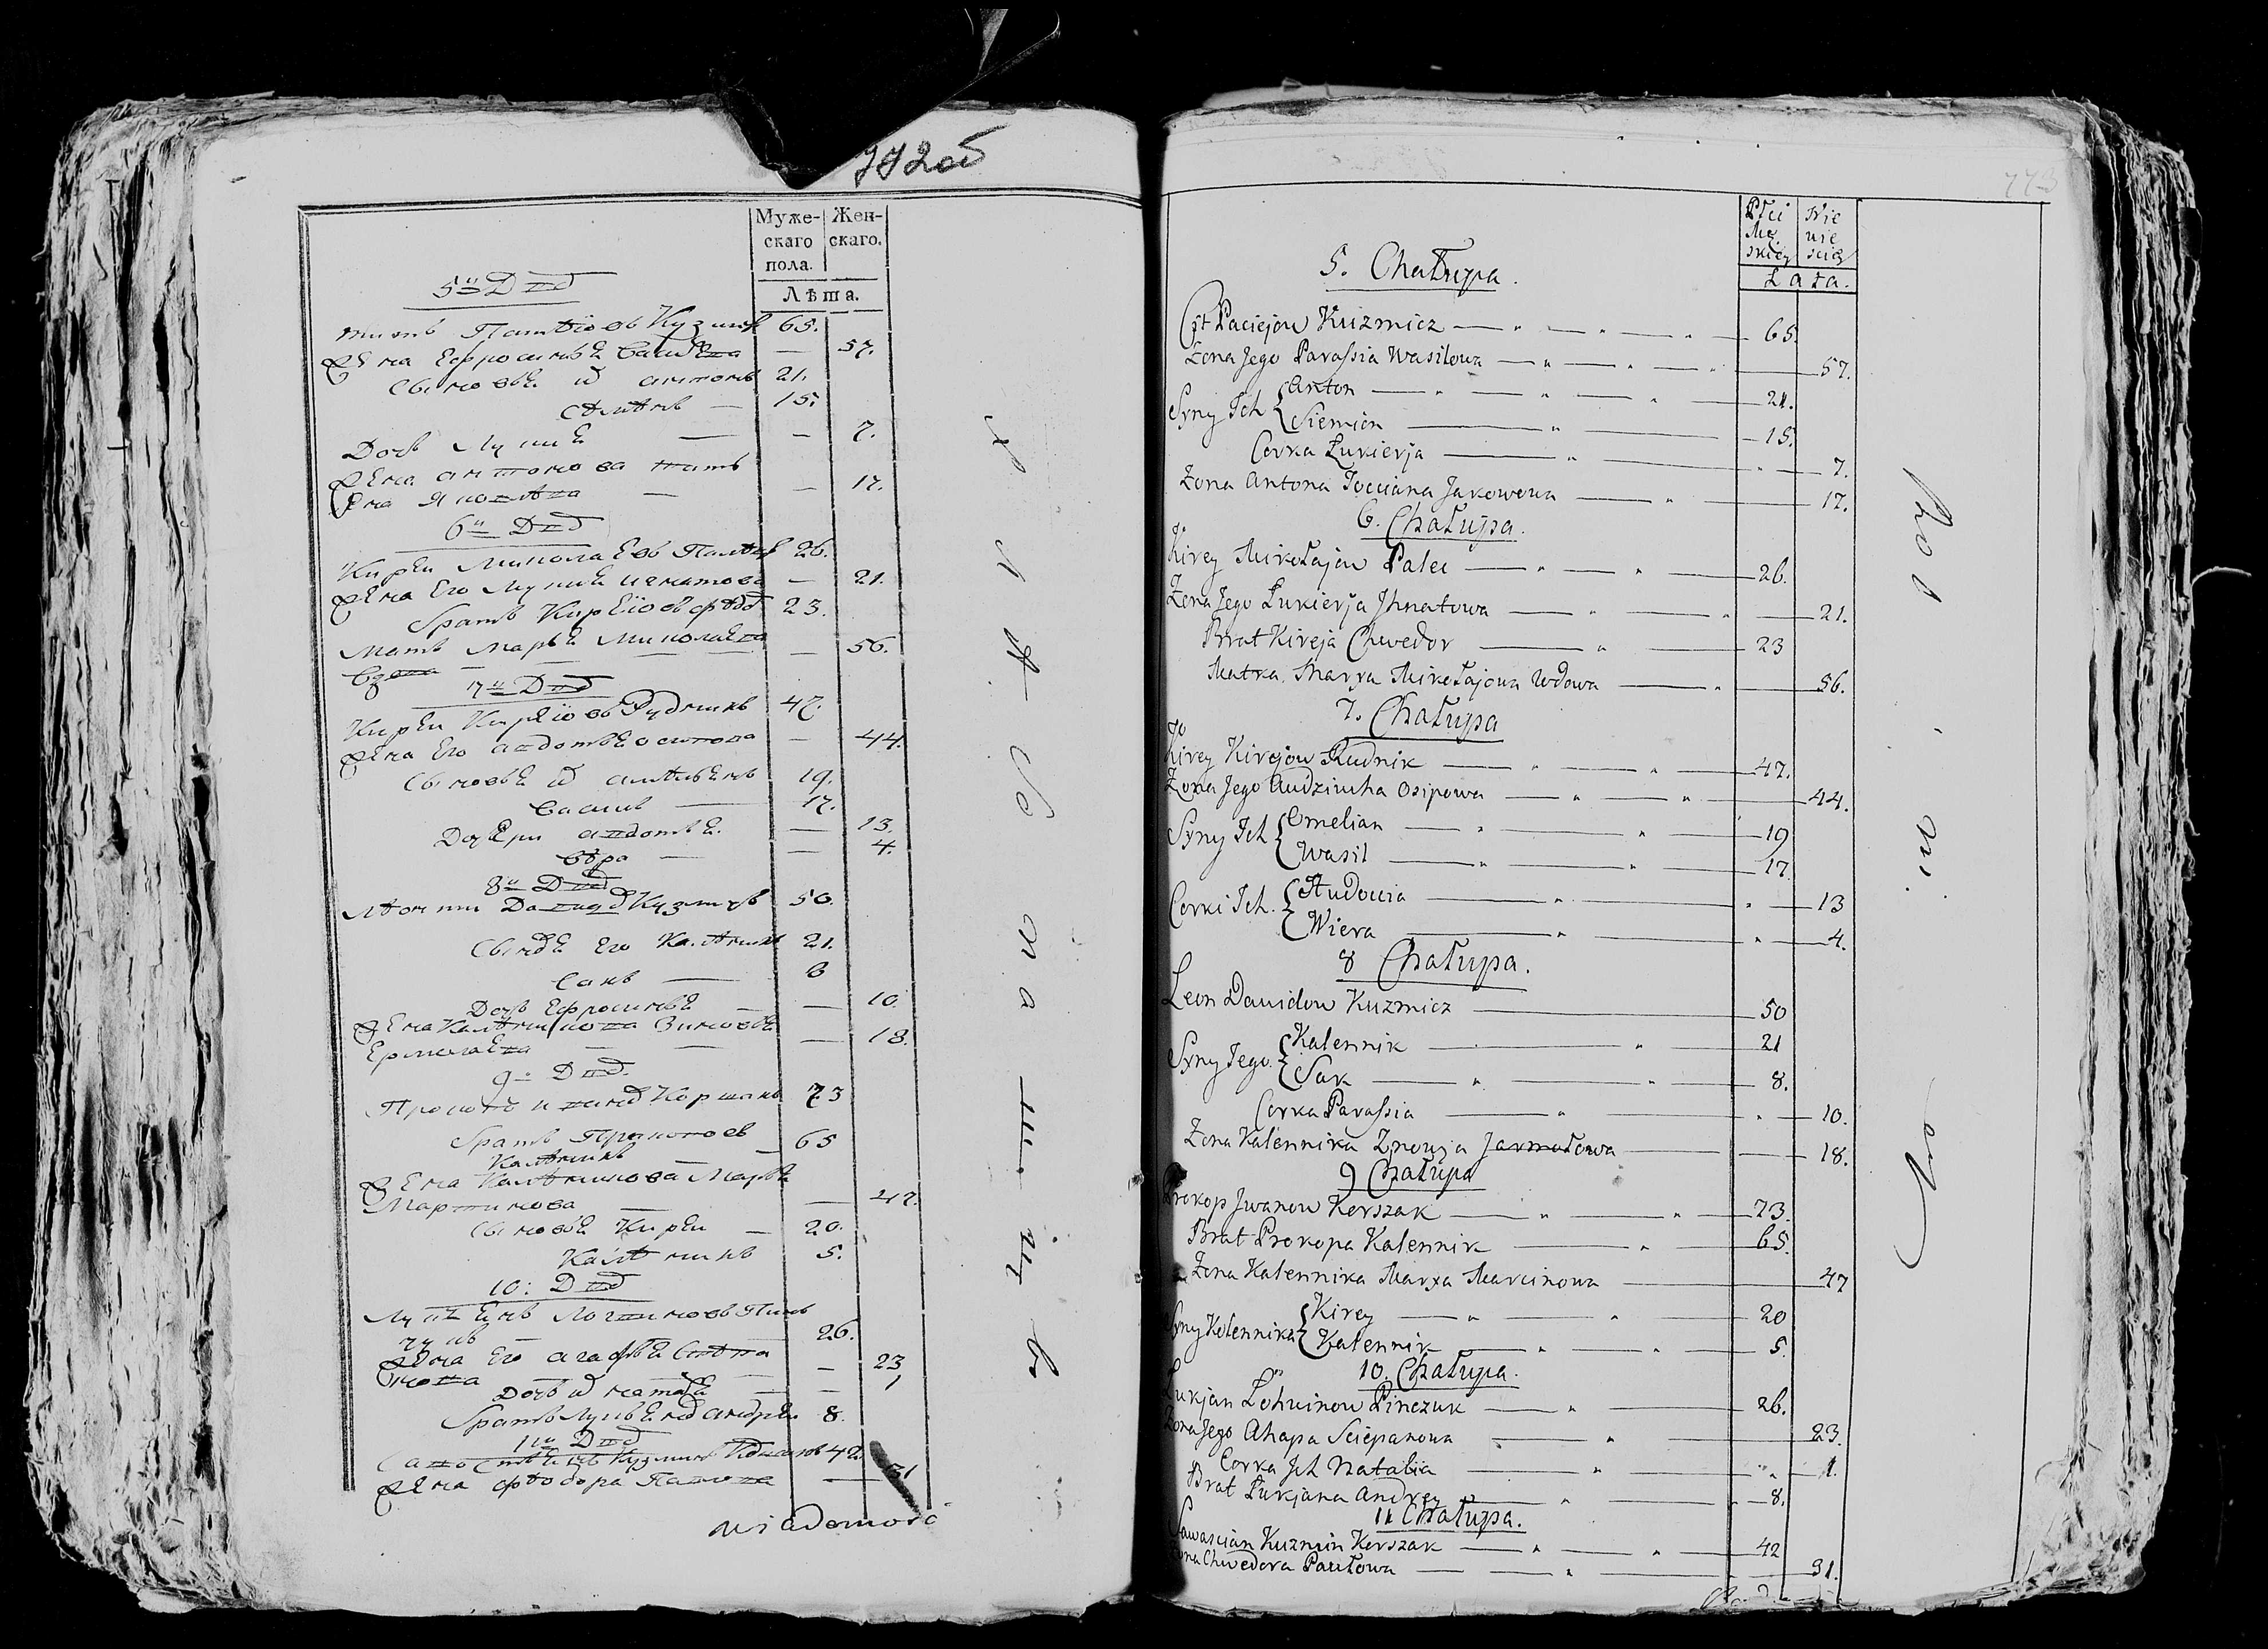 772об
Муже- Жен-
скаго скаго.
пола.
Лѣта.
5й Двор
Титъ Патѣіовъ Кузмичъ 65.
Жена Ефросинья Василева — 57.
Сыновья их Антонъ 21.
Сѣмѣнъ — 15.
Дочь Лукия — — 7.
Жена Антонова Тать
яна Яковлева — — 17.
6й Двор
Кирѣи Миколаевъ Палѣцъ 26.
Жена Его Лукия Игнатова — 21.
Братъ Кирѣіовъ Фѣдор 23.
Мать Марья Миколаева
Вдова — — — 56.
7й Двор
Кирѣи Кирѣіовъ Рудникъ 47.
Жена Его Авдотья Осипова — 44.
Сыновья их Амѣльянъ 19.
Василь — 17.
Дочери Авдотья — 13.
Вѣра — — 4.
8й Двор
Лѣонтии Давидов Кузмичъ 50.
Сыны Его Калѣникъ 21.
Сакъ — 8
Дочь Ефросинья — — 10.
Жена Калѣникова Зиновья
Ермолаева — — — 18.
9й Двор.
Прокопъ Иванов Коршакъ 73
Братъ Прокопов
Калѣникъ — 65
Жена Калѣникова Марья
Мартинова — — 47.
Сыновья Кирѣи — 20.
Калѣникъ 5.
10: Двор
Лукьянъ Логвиновъ Пин
чукъ — 26.
Жена Его Агафья Стѣпа
нова — — 23
Дочь их Наталья — — 1
Братъ Лукьянов Андрѣи 8.
11й Двор
Савостьянъ Кузминъ Коршакъ 42
Жена Фѣодора Павлова — 31
wiadomość
773
Płci Nie
Mę wie
skiey sciey
Lata.
5. Chałupa.
Cit Paciejow Kuzmicz — 65.
Żona Jego Parassia Wasilowa — 57.
Syny Ich { Anton — 21.
Siemien — 15.
Corka Łukierja — 7.
Żona Antona Tacciana Jakowowa — 17.
6. Chałupa.
Kirey Mikołajow Palec — 26.
Żona Jego Łukierja Ihnatowa — 21.
Brat Kireja Chwedor — 23
Matka Maryia Mikołajowa Wdowa — 56.
7. Chałupa
Kirey Kirejow Rudnik — 47.
Żona Jego Audziucha Osipowa — 44.
Syny Ich { Omelian — 19
Wasil — 17
Corki Ich. { Audocia — 13
Wiera — 4.
8 Chałupa.
Leon Dawidow Kuzmicz — 50
Syny Jego. { Kalennik — 21
Sak — 8.
Corka Parassia — 10.
Żona Kalennika Znowja Jarmołowa — 18.
9 Chałupa
Prokop Jwanow Korszak — 73.
Brat Prokopa Kalennik — 65.
Żona Kalennika Marya Marcinowa — 47
Syny Kalennika { Kirey — 20
Kalennik — 5.
10. Chałupa.
Łukjan Łohwinow Pinczuk — 26.
Żona Jego Ahapa Sciepanowa — 23.
Corka Ich Natalia — 1.
Brat Łukjana Andrey — 8.
11 Chałupa.
Sawascian Kuzmin Korszak — 42
Żona Chwedora Pawłowa — 31.